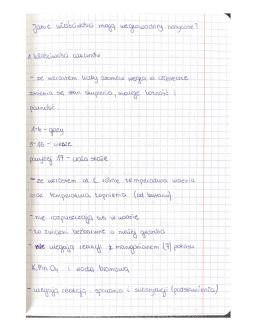 Jakie właściwości mają węglowodory nasycone?
Właściwości
- ze wzrostem liczby atomów węgla w cząsteczce
zmienia się stan skupienia, maleje lotność i
palność.
1-4 - gazy
5-16 - ciecze
powyżej 17 - ciała stałe
- ze wzrostem at. C rośnie temperatura wrzenia
oraz temperatura topnienia (od butanu)
- nie rozpuszczają się w wodzie
- są bezbarwne o małej gęstości
- nie ulegają reakcji z manganianem (7) potasu
KMnO4 i wodą bromową
- ulegają reakcji spalania i substytucji (podstawienia)